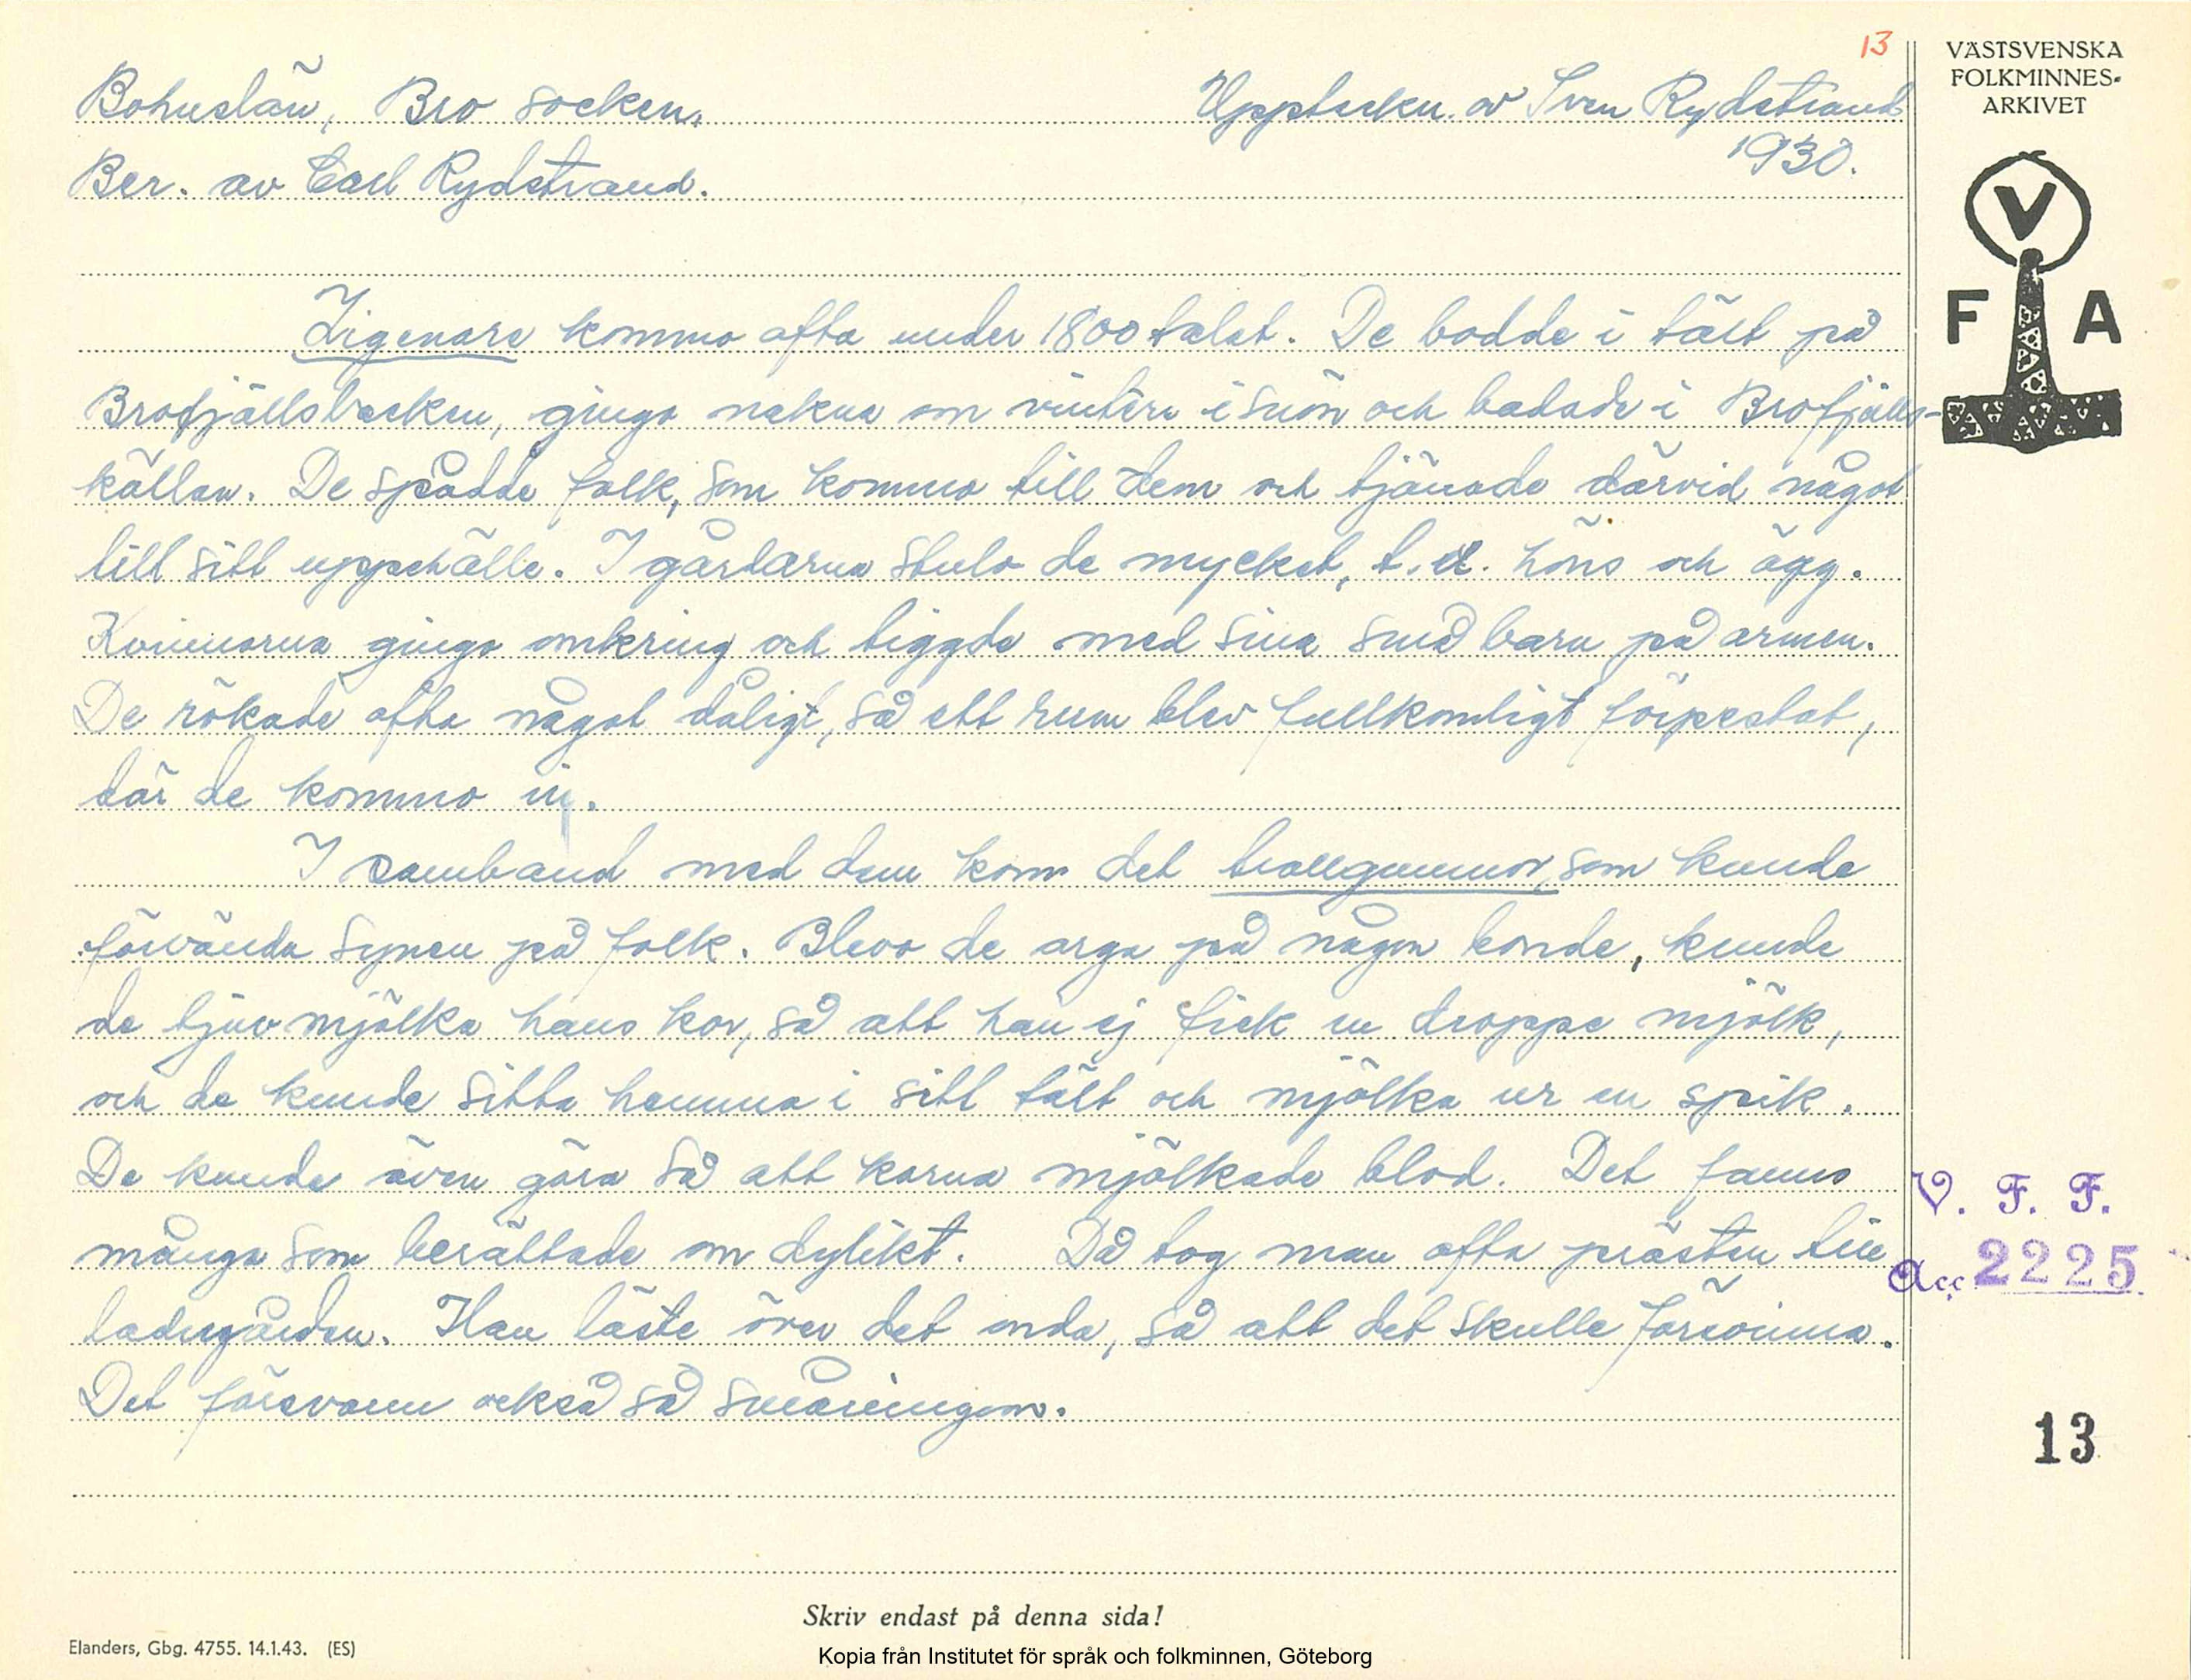 13
VÄSTSVENSKA
FOLKMINNES-
ARKIVET
Bohuslän, Bro socken.
Uppteckn. av Sven Rydstrand
1930.
Ber. av Carl Rydstrand.
V
F A
Zigenare kommo ofta under 1800 talet. De bodde i tält på
Brofjällsbacken, gingo nakna om vintern i snön och badade i Brofjälls-
källan. De spådde folk, som kommo till dem och tjänade därvid något
till sitt uppehälle. I gårdarna stulo de mycket, t. ex. höns och ägg.
Kvinnorna gingo omkring och tiggde med sina små barn på armen.
De rökade ofta något dåligt, så ett rum blev fullkomligt förpestat,
där de kommo in.
I samband med dem kom det trollgummor, som kunde
förvända synen på folk. Blevo de arga på någon bonde, kunde
de tjuvmjölka hans kor, så att han ej fick en droppe mjölk,
och de kunde sitta hemma i sitt tält och mjölka ur en spik.
De kunde även göra så att korna mjölkade blod. Det fanns
många som berättade om dylikt. Då tog man ofta prästen till
ladugården. Han läste över det onda, så att det skulle försvinna.
Det försvann också så småningom.
V. F. F.
Acc 2225
13
Skriv endast på denna sida!
Elanders, Gbg. 4755. 14.1.43. (ES)
Kopia från Institutet för språk och folkminnen, Göteborg